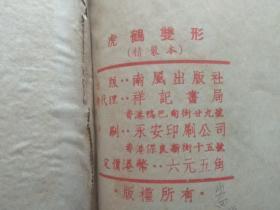 虎鶴雙形
(精裝本)
版‥南風出版社
代理‥祥記書局
香港鴨巴甸街廿九號
刷‥永安印刷公司
香港保良新街十五號
定價港幣‥六元五角
·版權所有·